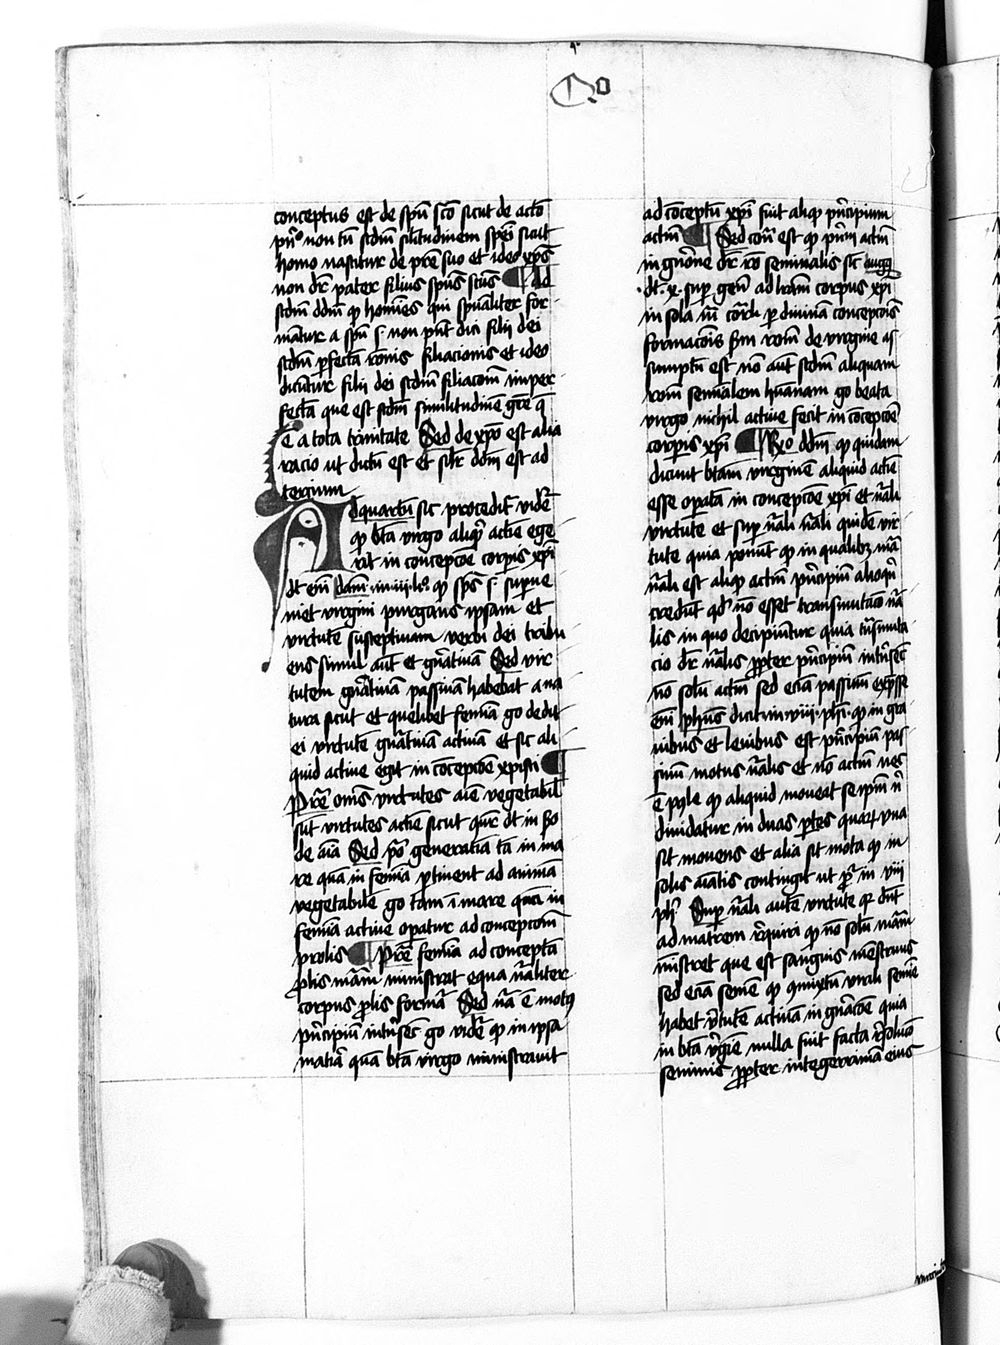 Qo
conceptus est de spū sc̄o sicut de actō
p̄no non tn̄ scdm̄ sl̄itudinem sp̄ei sicut
homo nascitur de pr̄e suo et ideo xp̄s
non dr̄ pater filius sp̄us sc̄us ¶ Ad
scdm̄ dd̄m qp hom̄ies qui sp̄ualiter for
mātur a spū s̄ non pn̄t dici filii dei
scdm̄ p̄fectā rōnis filiacionis et ideo
dicūtur filii dei scdm̄ filiacōm imper
fectā que est scdm̄ similitudinē gr̄e q̄
ē a tota trinitate Sed de xp̄o est alia
racio ut dictū est et sil̄r dd̄m est ad
tercium
Ad quartū sic procedit᷑ videt᷑
qp bt̄a virgo aliqd̄ actīe ege
rit in concepcōe corpīs xp̄i
dt eī Dam̄ in iiii lo qp sp̄s s̄ supue
niet virgini purgans ipsam et
virtutē susceptiuam verbi dei tribu
ens simul aūt et gn̄atiuā Sed vir
tutem gn̄atiuā passiuā habebat a na
tura sicut et quelibet femīa go dedit
ei virtutē gn̄atiuā actiuā et sic ali
quid actiue egit in cōcepcōe xpisti ¶
Pret̄ om̄s virtutes aīe vegetabil̄
sūt virtutes actīe sicut qūr dt in ſco
de aīa Sed pō generatīa tā in ma
re quā in femīa p̄tinent ad animā
vegetabilē go tam ī mare quā in
femīa actiue opatur ad concepcōm
prolis ¶ Pret̄ femīa ad conceptū
p̄lis mām ministrat ex qua nāliter
corpus p̄lis formāt᷑ Sed nā ē motꝯ
pn̄cipiū intn̄sec̄ go videt᷑ qp in ipsa
matīa quā bt̄a virgo ministrauit
ad cōceptū xp̄i fuit aliqd̄ pn̄cipium
actiū ¶ Sed con̄ est qp pn̄m actiū
in gn̄one dr̄ rō seminalis sic augꝯ
dt x sup gen̄ ad lr̄am corpus xp̄i
in sola mā corāli p diuinā concepcōis
formacōis s̄m rōm de virgine as
sumptū est nō aūt scdm̄ aliquam
rōm semīalem hūanam go beata
virgo nichil actiue fecit in cōcepcōe
corpis xp̄i ¶ R̄o dd̄m qp quidam
dicūt bt̄am virginē aliquid actīe
esse opatā in concepcōe xp̄i et nāli
virtute et sup nāli nāli quidē vir
tute quia ponūt qp in qualibꝫ mā
nāli est aliqd̄ actiū pn̄cipiū alioqn̄
credūt qd̄ nō esset transmutacō nā
lis in quo decipiūtur quia tn̄smuta
cio dr̄ nālis ꝓpter pn̄cipiū intn̄sec̄
nō solū actiū sed eciā passiuū exp̄sse
eī ph̄us dicit in viii ph̄i qp in gra
uibus et leuibus est pn̄cipiū pas
siuū motus nālis et nō actiū nec
ē pōle qp aliquid moueat seipm̄ nī
diuidatur in duas ptes quaꝝ vna
sit mouens et alia sit mota qp in
solis aīatis contingit ut p̄t in viii
ph̄i Sup nāli autē virtute qp dn̄t
ad matrem requirit᷑ qp nō solū mām
ministret que est sanguis mēstruus
sed eciā semē qp ꝯmixtū virili semī
habet v̄tutē actiuā in gn̄acōe quia
in bt̄a v̄gīe nulla fuit facta r̄solucō
seminis ꝓpter integerrimā eius